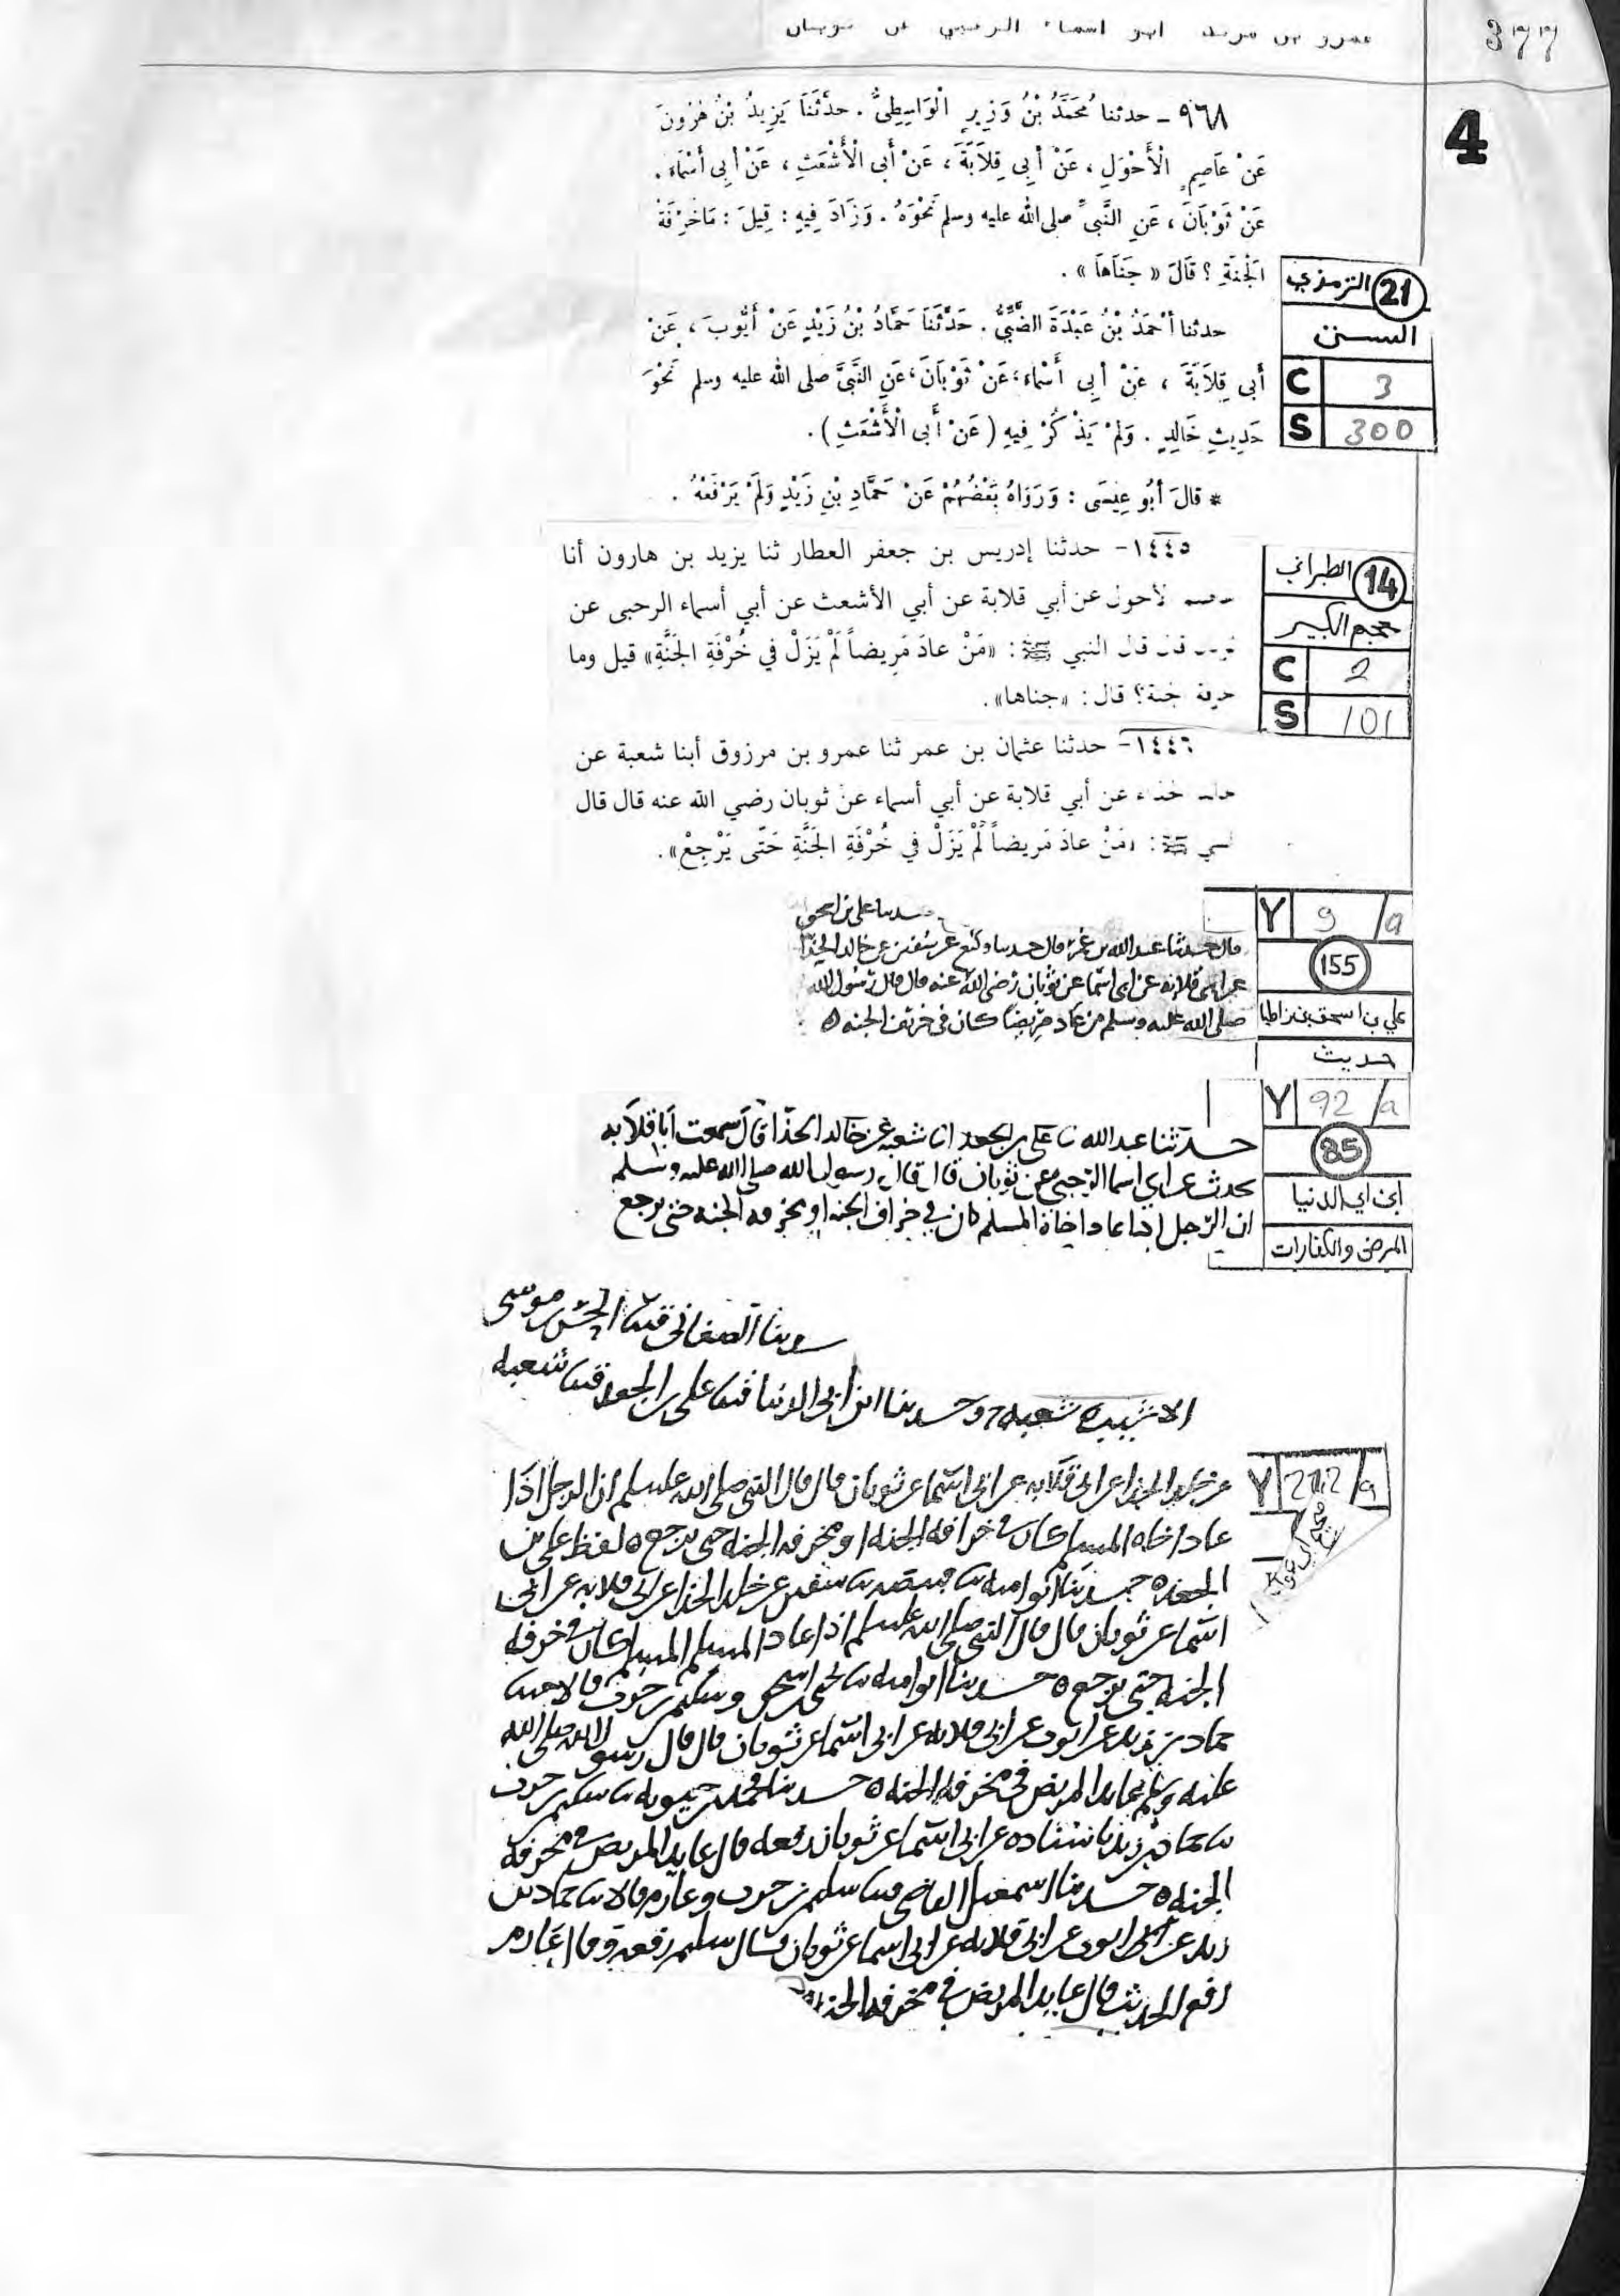 عمرو بن مرثد ابو اسماء الرحبي عن ثوبان
377
4
٩٦٨ – حدثنا مُحَمَّدُ بْنُ وَزِيرٍ الْوَاسِطِيُّ . حَدَّثَنَا يَزِيدُ بْنُ هٰرُونَ
عَنْ عَاصِمٍ الْأَحْوَلِ ، عَنْ أَبِي قِلاَبَةَ ، عَنْ أَبِي الْأَشْعَثِ ، عَنْ أَبِي أَسْمَاءَ .
عَنْ ثَوْبَانَ ، عَنِ النَّبِيِّ صلى الله عليه وسلم نَحْوَهُ . وَزَادَ فِيهِ : قِيلَ : مَا خُرْفَةُ
الْجَنَّةِ ؟ قَالَ « جَنَاهَا » .
21 الترمذي
السنن
C 3
S 300
حدثنا أَحْمَدُ بْنُ عَبْدَةَ الضَّبِّيُّ . حَدَّثَنَا حَمَّادُ بْنُ زَيْدٍ عَنْ أَيُّوبَ ، عَنْ
أَبِي قِلاَبَةَ ، عَنْ أَبِي أَسْمَاءَ ، عَنْ ثَوْبَانَ ، عَنِ النَّبِيِّ صلى الله عليه وسلم نَحْوَ
حَدِيثِ خَالِدٍ . وَلَمْ يَذْكُرْ فِيهِ ( عَنْ أَبِي الْأَشْعَثِ ) .
* قَالَ أَبُو عِيسَى : وَرَوَاهُ بَعْضُهُمْ عَنْ حَمَّادِ بْنِ زَيْدٍ وَلَمْ يَرْفَعْهُ .
١٤٤٥– حدثنا إدريس بن جعفر العطار ثنا يزيد بن هارون أنا
لأحول عن أبي قلابة عن أبي الأشعث عن أبي أسماء الرحبى عن
قال قال النبي ﷺ : «مَنْ عادَ مَرِيضاً لَمْ يَزَلْ في خُرْفَةِ الجَنَّةِ» قيل وما
خرفة الجنة؟ قال : «جناها» .
14 الطبراني
معجم الكبير
C 2
S 101
١٤٤٦– حدثنا عثمان بن عمر ثنا عمرو بن مرزوق أبنا شعبة عن
عن أبي قلابة عن أبي أسماء عن ثوبان رضي الله عنه قال قال
ﷺ : «مَنْ عادَ مَريضاً لَمْ يَزَلْ في خُرْفَةِ الجَنَّةِ حَتّى يَرْجِعْ» .
Y 9/a
155
علي بن اسحق بن زاطيا
حديث
حدثنا علي بن اسحق
قال حدثنا عبد الله بن عمر قال حدثنا وكيع عن سفين عن خالد الحذا
عن ابي قلابه عن ابي اسما عن ثوبان رضي الله عنه قال قال رسول الله
صلى الله عليه وسلم من عاد مريضا كان في خرفة الجنه
Y 92/a
85
ابن ابي الدنيا
المرض والكفارات
حدثنا عبد الله نا علي بن الجعد انا شعبه عن خالد الحذا قال سمعت ابا قلابه
يحدث عن ابي اسما الرحبي عن ثوبان قال قال رسول الله صلى الله عليه وسلم
ان الرجل اذا عاد اخاه المسلم كان في خراف الجنه او مخرفه الجنه حتى يرجع
حدثنا الصغاني قثنا الحسن بن موسى
الاشيب شعبه وحدثنا ابن ابي الدنيا قثنا علي بن الجعد قثنا شعبه
Y 212/a
عن خالد الحذا عن ابي قلابه عن ابي اسما عن ثوبان قال قال النبي صلى الله عليه وسلم ان الرجل اذا
عاد اخاه المسلم كان في خرافه الجنه او مخرفه الجنه حتى يرجع لفظ علي بن
الجعد حدثنا ابو اميه نا قبيصه نا سفين عن خالد الحذا عن ابي قلابه عن ابي
اسما عن ثوبان قال قال النبي صلى الله عليه وسلم اذا عاد المسلم المسلم كان في خرفه
الجنه حتى يرجع حدثنا ابو اميه نا يحيى بن اسحق وسليمن بن حرب قالا ثنا
حماد بن زيد عن ايوب عن ابي قلابه عن ابي اسما عن ثوبان قال قال رسول الله صلى الله
عليه وسلم عايد المريض في مخرفه الجنه حدثنا محمد بن حيويه نا سليمن بن حرب
نا حماد بن زيد باسناده عن ابي اسما عن ثوبان رفعه قال عايد المريض في مخرفه
الجنه حدثنا اسمعيل القاضي قثنا سليمن بن حرب وعارم قالا نا حماد بن
زيد عن ايوب عن ابي قلابه عن ابي اسما عن ثوبان قال سليمن رفعه وقال عارم
رفع الحديث قال عايد المريض في مخرفه الجنه